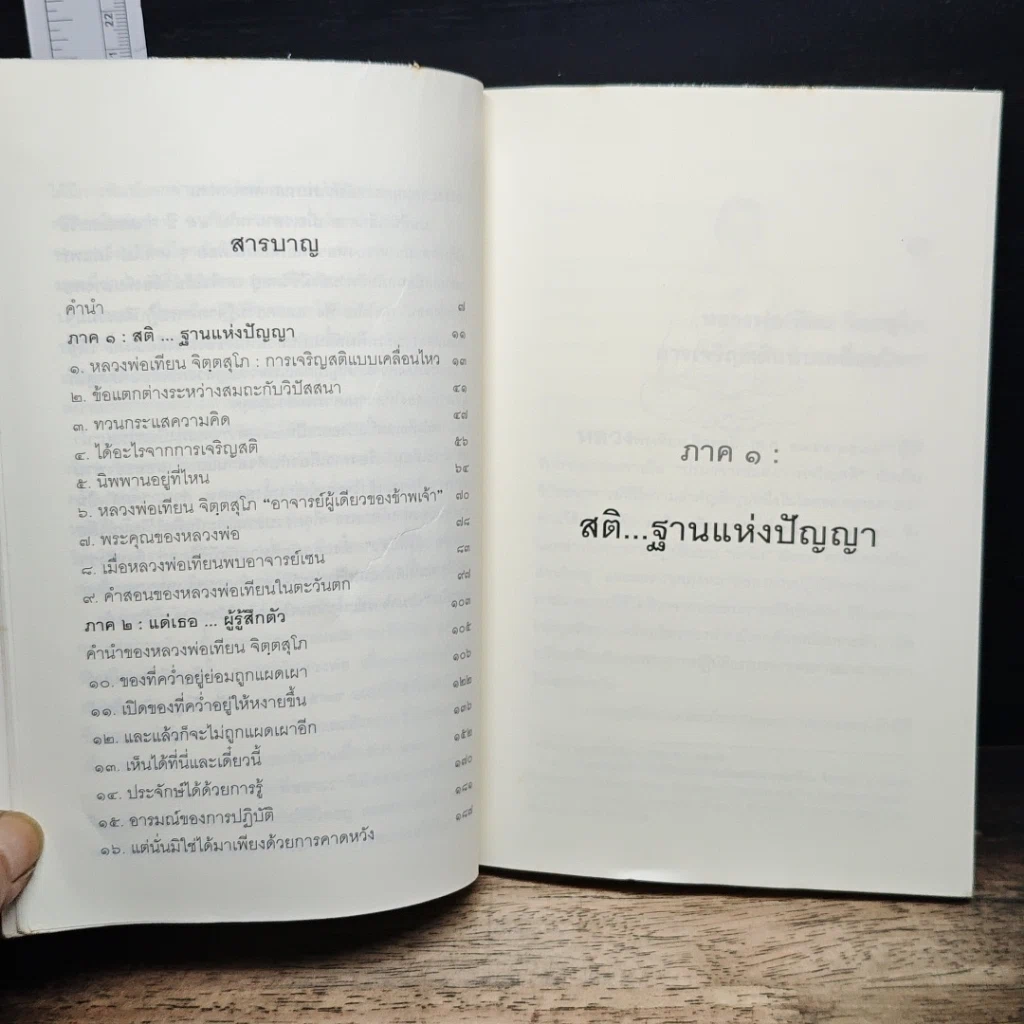 22
สารบาญ
คำนำ ๗
ภาค ๑ : สติ ... ฐานแห่งปัญญา ๑๑
๑. หลวงพ่อเทียน จิตฺตสุโภ : การเจริญสติแบบเคลื่อนไหว ๑๓
๒. ข้อแตกต่างระหว่างสมถะกับวิปัสสนา ๔๑
๓. ทวนกระแสความคิด ๔๗
๔. ได้อะไรจากการเจริญสติ ๕๖
๕. นิพพานอยู่ที่ไหน ๖๔
๖. หลวงพ่อเทียน จิตฺตสุโภ “อาจารย์ผู้เดียวของข้าพเจ้า” ๗๐
๗. พระคุณของหลวงพ่อ ๗๘
๘. เมื่อหลวงพ่อเทียนพบอาจารย์เซน ๘๓
๙. คำสอนของหลวงพ่อเทียนในตะวันตก ๙๗
ภาค ๒ : แด่เธอ ... ผู้รู้สึกตัว ๑๐๓
คำนำของหลวงพ่อเทียน จิตฺตสุโภ ๑๐๕
๑๐. ของที่คว่ำอยู่ย่อมถูกแผดเผา ๑๐๖
๑๑. เปิดของที่คว่ำอยู่ให้หงายขึ้น ๑๒๒
๑๒. และแล้วก็จะไม่ถูกแผดเผาอีก ๑๓๖
๑๓. เห็นได้ที่นี่และเดี๋ยวนี้ ๑๕๒
๑๔. ประจักษ์ได้ด้วยการรู้ ๑๗๐
๑๕. อารมณ์ของการปฏิบัติ ๑๘๑
๑๖. แต่นั่นมิใช่ได้มาเพียงด้วยการคาดหวัง ๑๘๗
ภาค ๑ :
สติ...ฐานแห่งปัญญา